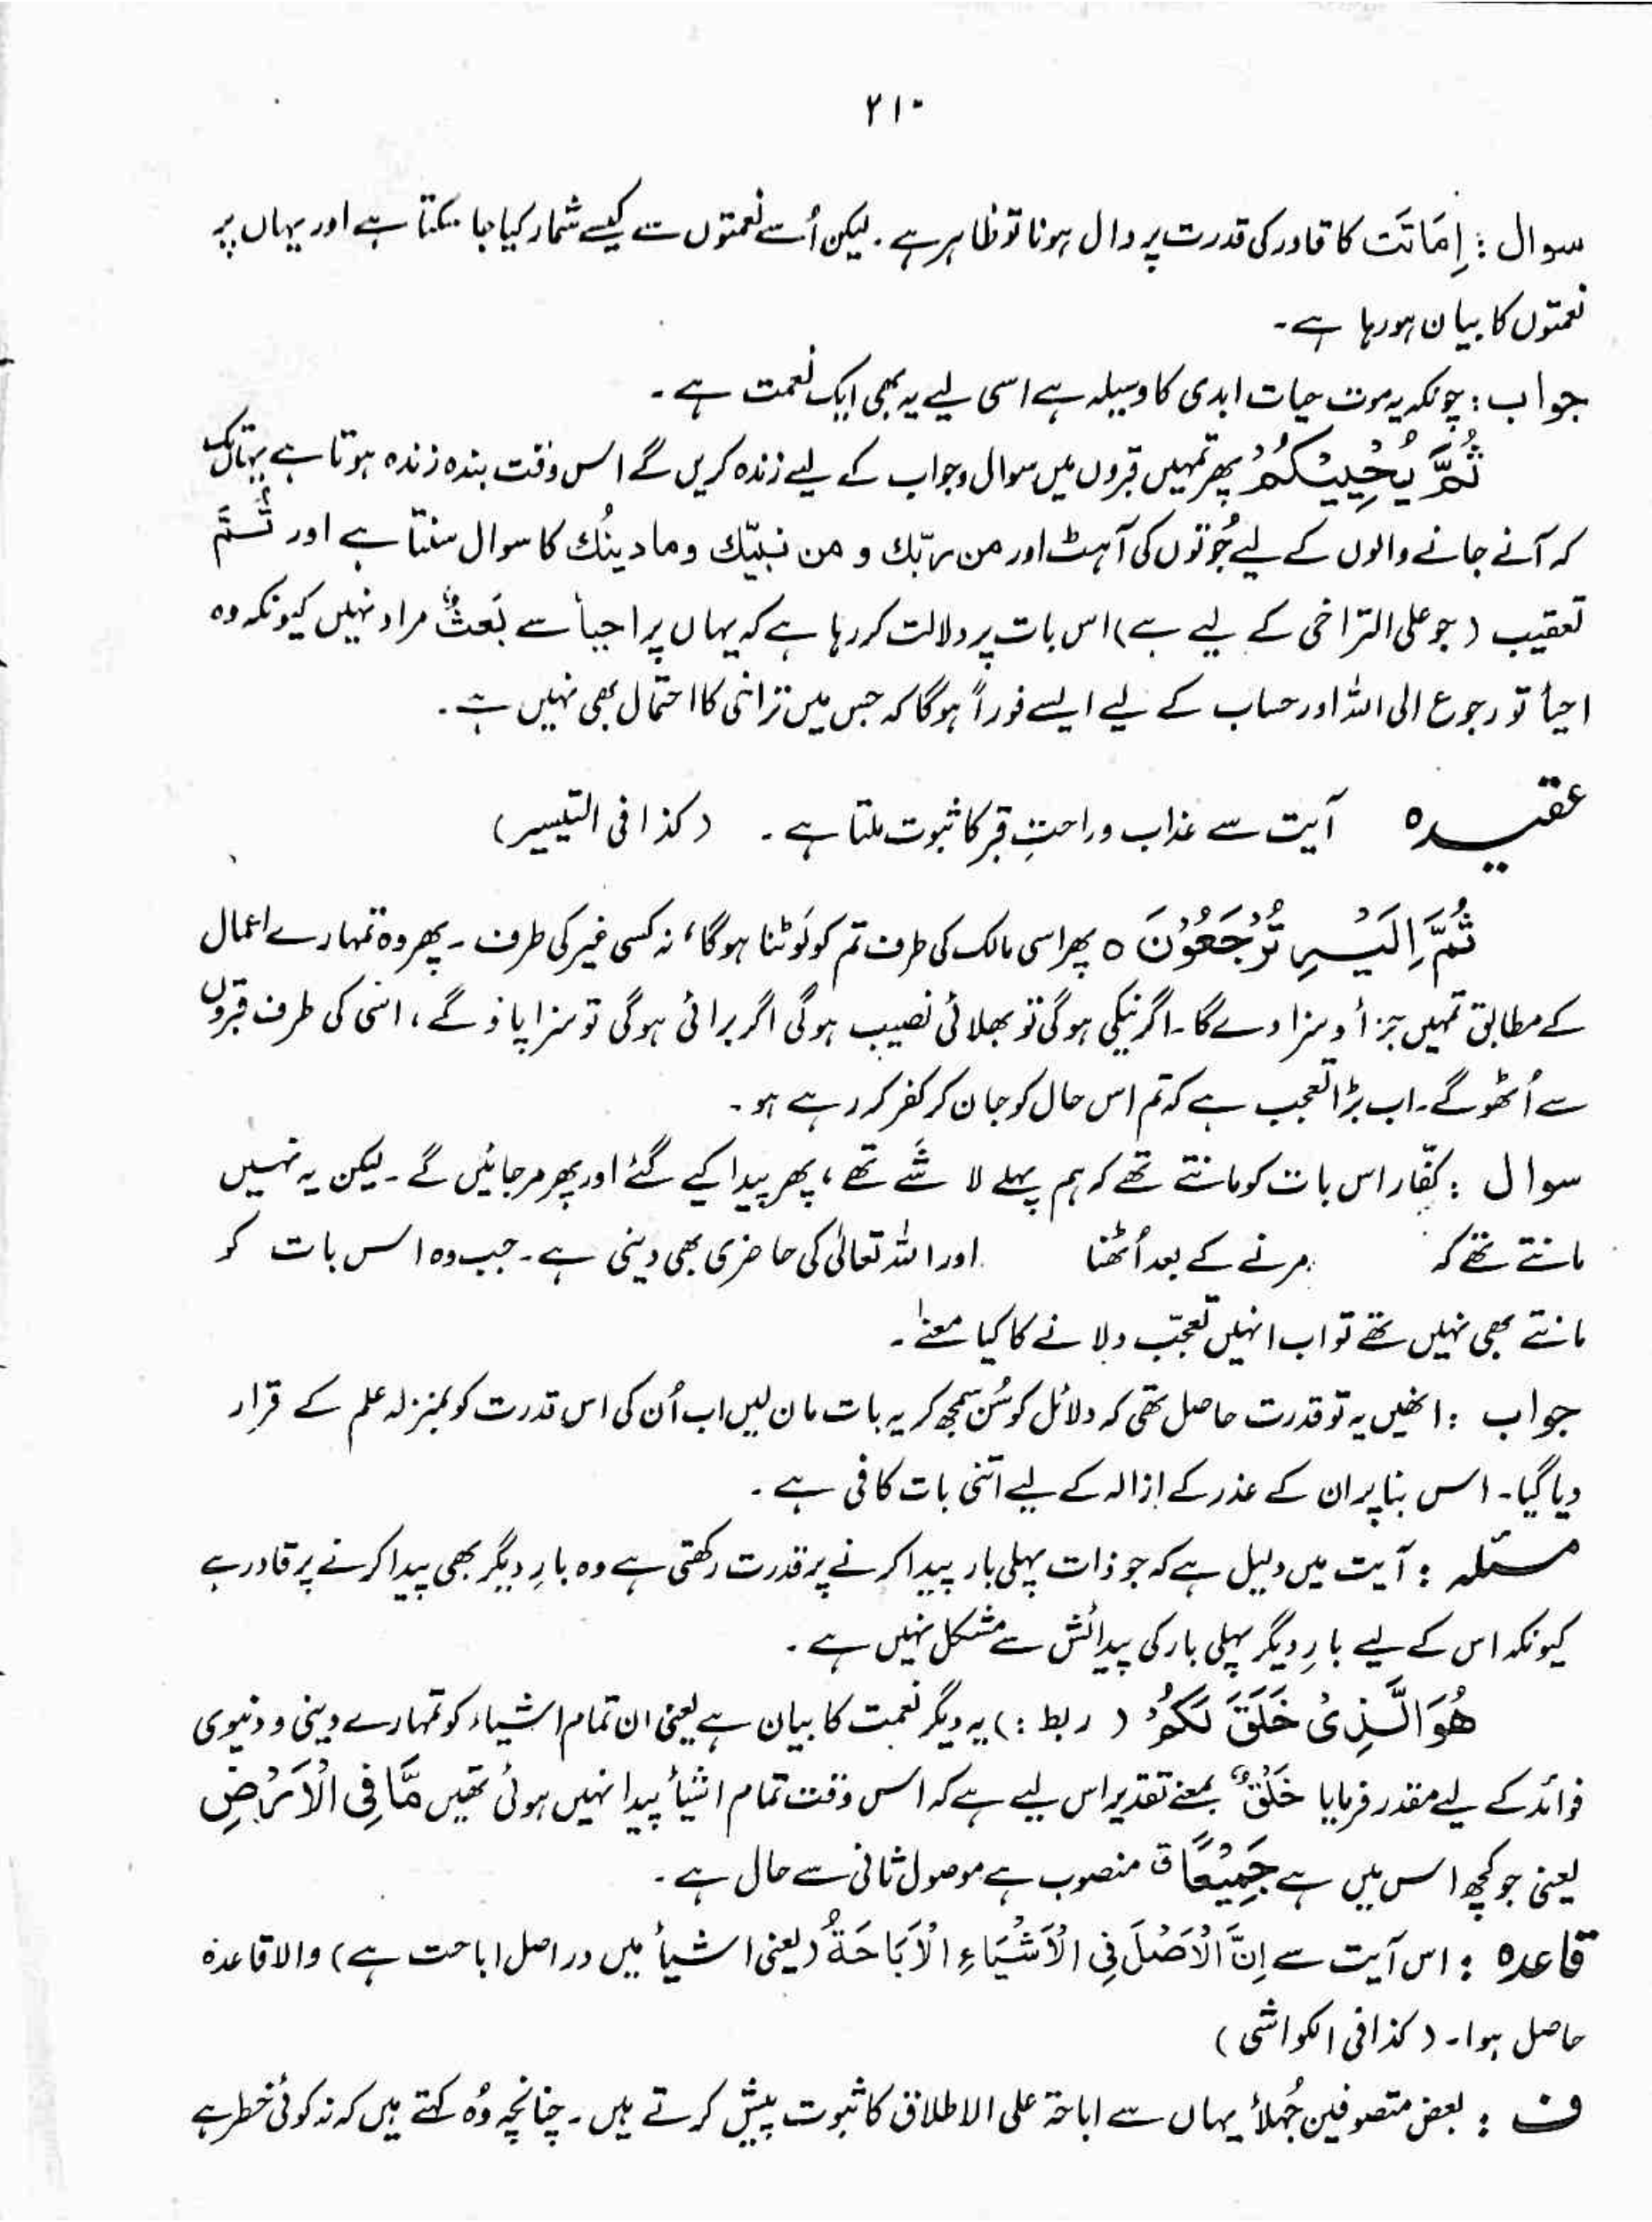 ۲۱۰
سوال : إِمَاتَت کا قادر کی قدرت پر دال ہونا تو ظاہر ہے ۔ لیکن اُسے نعمتوں سے کیسے شمار کیا جا سکتا ہے اور یہاں پر
نعمتوں کا بیان ہو رہا ہے ۔
جواب : چونکہ یہ موت حیات ابدی کا وسیلہ ہے اسی لیے یہ بھی ایک نعمت ہے ۔
ثُمَّ يُحْيِيْكُمْ پھر تمہیں قبروں میں سوال و جواب کے لیے زندہ کریں گے اس وقت بندہ زندہ ہوتا ہے یہاں تک
کہ آنے جانے والوں کے لیے جُوتوں کی آہٹ اور من ربّك و من نبيّك وما دينُك کا سوال سنتا ہے اور ثُمَّ
تعقیب ( جو علی التراخی کے لیے ہے ) اس بات پر دلالت کر رہا ہے کہ یہاں پر احیأ سے بَعثٌ مراد نہیں کیونکہ وہ
احیأ تو رجوع الی اللہ اور حساب کے لیے ایسے فوراً ہوگا کہ جس میں تراخی کا احتمال بھی نہیں ہے ۔
عقیدہ آیت سے عذاب و راحتِ قبر کا ثبوت ملتا ہے ۔ ( کذا فی التیسیر )
ثُمَّ اِلَيْهِ تُرْجَعُوْنَ ہ پھر اسی مالک کی طرف تم کو لَوٹنا ہوگا، نہ کسی غیر کی طرف ۔ پھر وہ تمہارے اعمال
کے مطابق تمہیں جزأ و سزا دے گا ۔ اگر نیکی ہوگی تو بھلائی نصیب ہوگی اگر برائی ہوگی تو سزا پاؤ گے ، اسی کی طرف قبروں
سے اُٹھو گے ۔ اب بڑا تعجب ہے کہ تم اس حال کو جان کر کفر کر رہے ہو ۔
سوال : کفّار اس بات کو مانتے تھے کہ ہم پہلے لا شَے تھے ، پھر پیدا کیے گئے اور پھر مر جائیں گے ۔ لیکن یہ نہیں
مانتے تھے کہ مرنے کے بعد اُٹھنا اور اللہ تعالیٰ کی حاضری بھی دینی ہے ۔ جب وہ اس بات کو
مانتے بھی نہیں تھے تو اب انہیں تعجّب دلانے کا کیا معنے ۔
جواب : انھیں یہ تو قدرت حاصل تھی کہ دلائل کو سُن سمجھ کر یہ بات مان لیں اب اُن کی اس قدرت کو بمنزلہ علم کے قرار
دیا گیا ۔ اس بنا پر ان کے عذر کے ازالہ کے لیے اتنی بات کافی ہے ۔
مسئلہ : آیت میں دلیل ہے کہ جو ذات پہلی بار پیدا کرنے پر قدرت رکھتی ہے وہ بارِ دیگر بھی پیدا کرنے پر قادر ہے
کیونکہ اس کے لیے بارِ دیگر پہلی بار کی پیدائش سے مشکل نہیں ہے ۔
هُوَ الَّذِىْ خَلَقَ لَكُمْ ( ربط : ) یہ دیگر نعمت کا بیان ہے یعنی ان تمام اشیاء کو تمہارے دینی و دنیوی
فوائد کے لیے مقدر فرمایا خَلْقٌ بمعنے تقدیر اس لیے ہے کہ اس وقت تمام اشیأ پیدا نہیں ہوئی تھیں مَّا فِى الْاَرْضِ
یعنی جو کچھ اس میں ہے جَمِيْعًا ق منصوب ہے موصول ثانی سے حال ہے ۔
قاعدہ : اس آیت سے اِنَّ الْاَصْلَ فِى الْاَشْيَاءِ الْاَبَاحَةُ ( یعنی اشیأ میں در اصل اباحت ہے ) والا قاعدہ
حاصل ہوا ۔ ( کذا فی الکواشی )
ف : بعض متصوفین جُہلأ یہاں سے اباحۃ علی الاطلاق کا ثبوت پیش کرتے ہیں ۔ چنانچہ وُہ کہتے ہیں کہ نہ کوئی خطر ہے